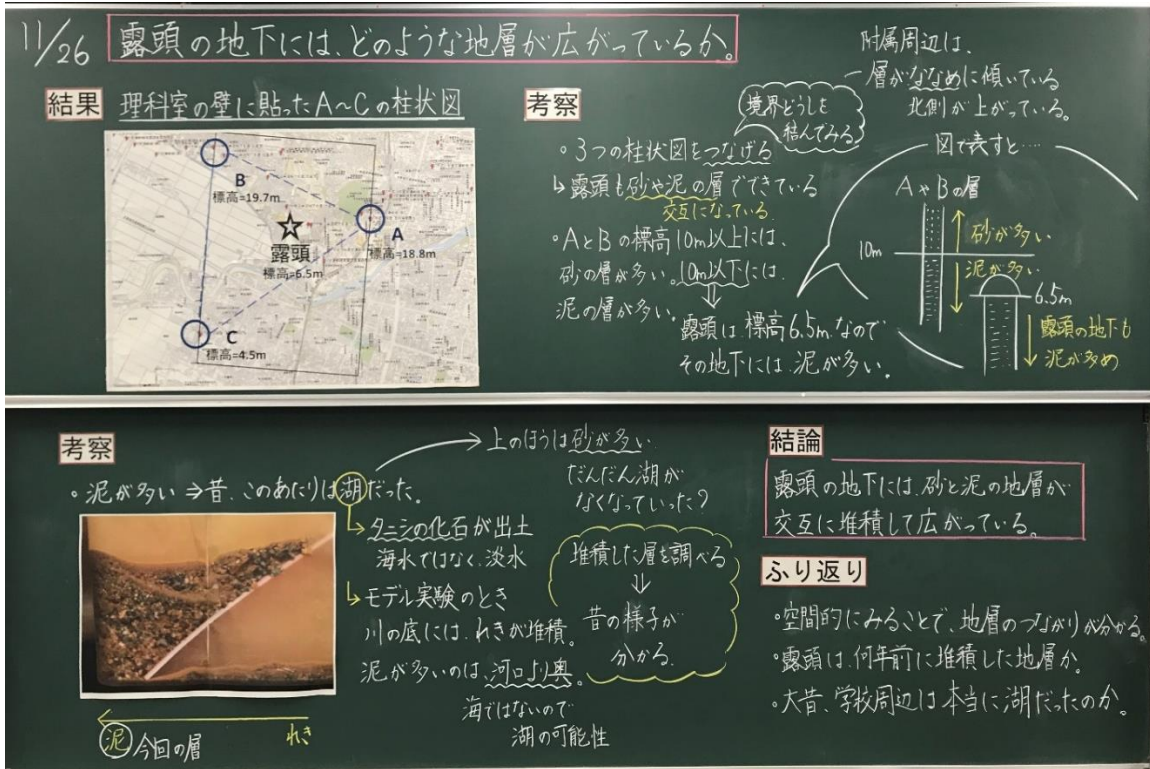 11/26
露頭の地下には、どのような地層が広がっているか。
結果
理科室の壁に貼ったA～Cの柱状図
B
標高=19.7m
露頭
標高=6.5m
A
標高=18.8m
C
標高=4.5m
考察
境界どうしを
結んでみる
・3つの柱状図をつなげる
↳露頭も砂や泥の層でできている
交互になっている
・AとBの標高10m以上には、
砂の層が多い。10m以下には、
泥の層が多い。
⇓
露頭は標高6.5mなので
その地下には泥が多い。
附属周辺は、
層がななめに傾いている
北側が上がっている。
図で表すと…
AやBの層
砂が多い
10m
泥が多い
6.5m
露頭の地下も
泥が多め
考察
・泥が多い⇒昔、このあたりは湖だった。
上のほうは砂が多い
だんだん湖が
なくなっていった？
タニシの化石が出土
海水ではなく、淡水
モデル実験のとき
川の底には、れきが堆積。
泥が多いのは、河口より奥。
海ではないので
湖の可能性
堆積した層を調べる
⇓
昔の様子が
分かる
泥 今回の層
れき
結論
露頭の地下には、砂と泥の地層が
交互に堆積して広がっている。
ふり返り
・空間的にみることで、地層のつながりが分かる。
・露頭は、何年前に堆積した地層か。
・大昔、学校周辺は本当に湖だったのか。